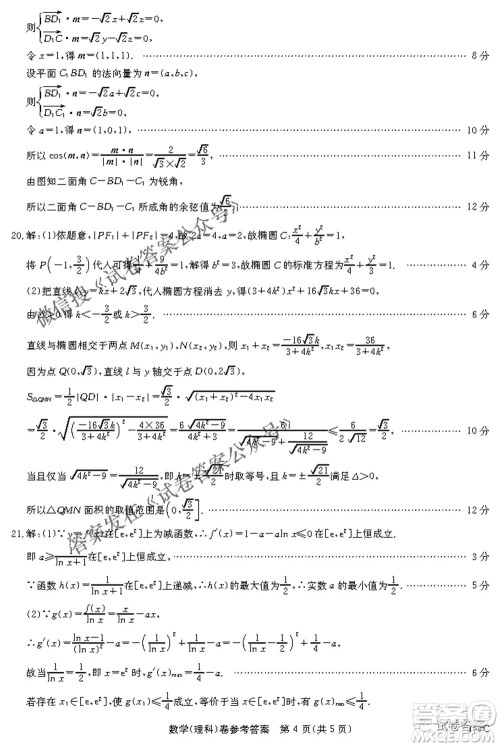 则{BD₁·m=-√2x+√2z=0,
D₁C·m=√2y-√2z=0,
令x=1,得m=(1,1,1). 8分
设平面C₁BD₁的法向量为n=(a,b,c),
则{BD₁·n=-√2a+√2c=0,
D₁C₁·n=√2b=0,
令a=1,得n=(1,0,1), 10分
所以cos⟨m,n⟩=m·n/(|m|·|n|)=2/(√3×√2)=√6/3, 11分
由图知二面角C-BD₁-C₁为锐角,
所以二面角C-BD₁-C₁所成角的余弦值为√6/3. 12分
20.解:(1)依题意,|PF₁|+|PF₂|=4,故2a=4,a=2,故椭圆C:x²/4+y²/b²=1,
将P(-1,3/2)代入可得1/4+9/(4b²)=1,解得b²=3,故椭圆C的标准方程为x²/4+y²/3=1. 4分
(2)把直线l:y=kx+2√3,代入椭圆方程消去y,得(3+4k²)x²+16√3kx+36=0,
由Δ>0得k<-3/2或k>3/2. 6分
直线与椭圆相交于两点M(x₁,y₁),N(x₂,y₂),则x₁+x₂=-16√3k/(3+4k²),x₁x₂=36/(3+4k²),
因为点Q(0,√3),直线l与y轴交于点D(0,2√3),
S△QMN=1/2|QD|·|x₁-x₂|=√3/2·√((x₁+x₂)²-4x₁x₂)
=√3/2·√((-16√3k/(3+4k²))²-4×36/(3+4k²))=6√(4k²-9)/(3+4k²)=6√(4k²-9)/(4k²-9+12)=6/(√(4k²-9)+12/√(4k²-9))≤6/(2√12)=√3/2, 10分
当且仅当√(4k²-9)=12/√(4k²-9),即k=±√21/2时取等号,且k=±√21/2满足Δ>0,
所以△QMN面积的取值范围是(0,√3/2]. 12分
21.解:(1)∵y=f(x)在[e,e²]上为减函数,∴f′(x)=1-a-aln x≤0在[e,e²]上恒成立,
即a≥1/(ln x+1)在[e,e²]上恒成立. 3分
∵函数h(x)=1/(ln x+1)在[e,e²]上递减,∴h(x)的最大值为1/2,∴实数a的最小值为1/2. 5分
(2)∵g(x)=f(x)/ln x=x/ln x-ax,
∴g′(x)=(ln x-1)/(ln x)²-a=-(1/ln x)²+1/ln x-a=-(1/ln x-1/2)²+1/4-a,
故当1/ln x=1/2,即x=e²时,g′(x)max=1/4-a. 6分
若存在x₁,x₂∈[e,e²],使g(x₁)≤g′(x₂)+a成立等价于
数学(理科)卷参考答案 第4页(共5页)
微信搜《试卷答案公众号》
答案发布《试卷答案公众号》
试卷答案